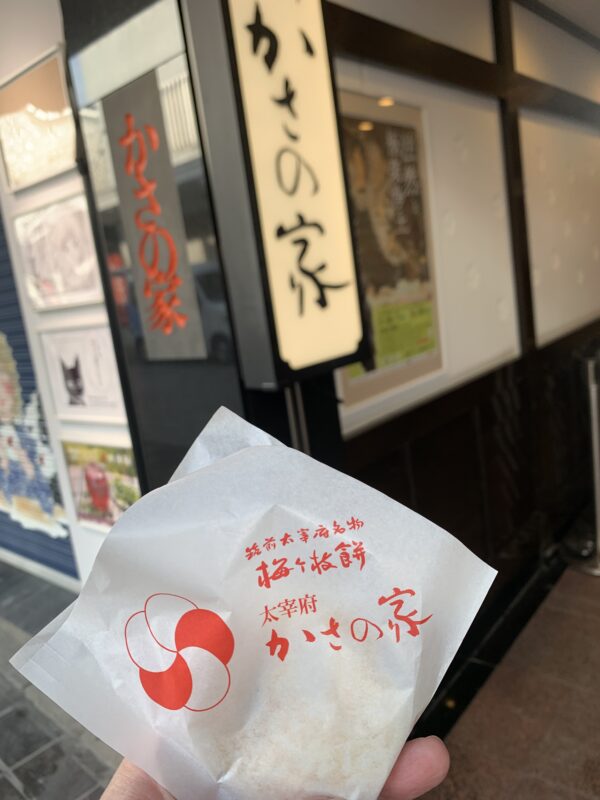 かさの家
かさの家
筑前太宰府名物
梅ヶ枝餅
太宰府
かさの家